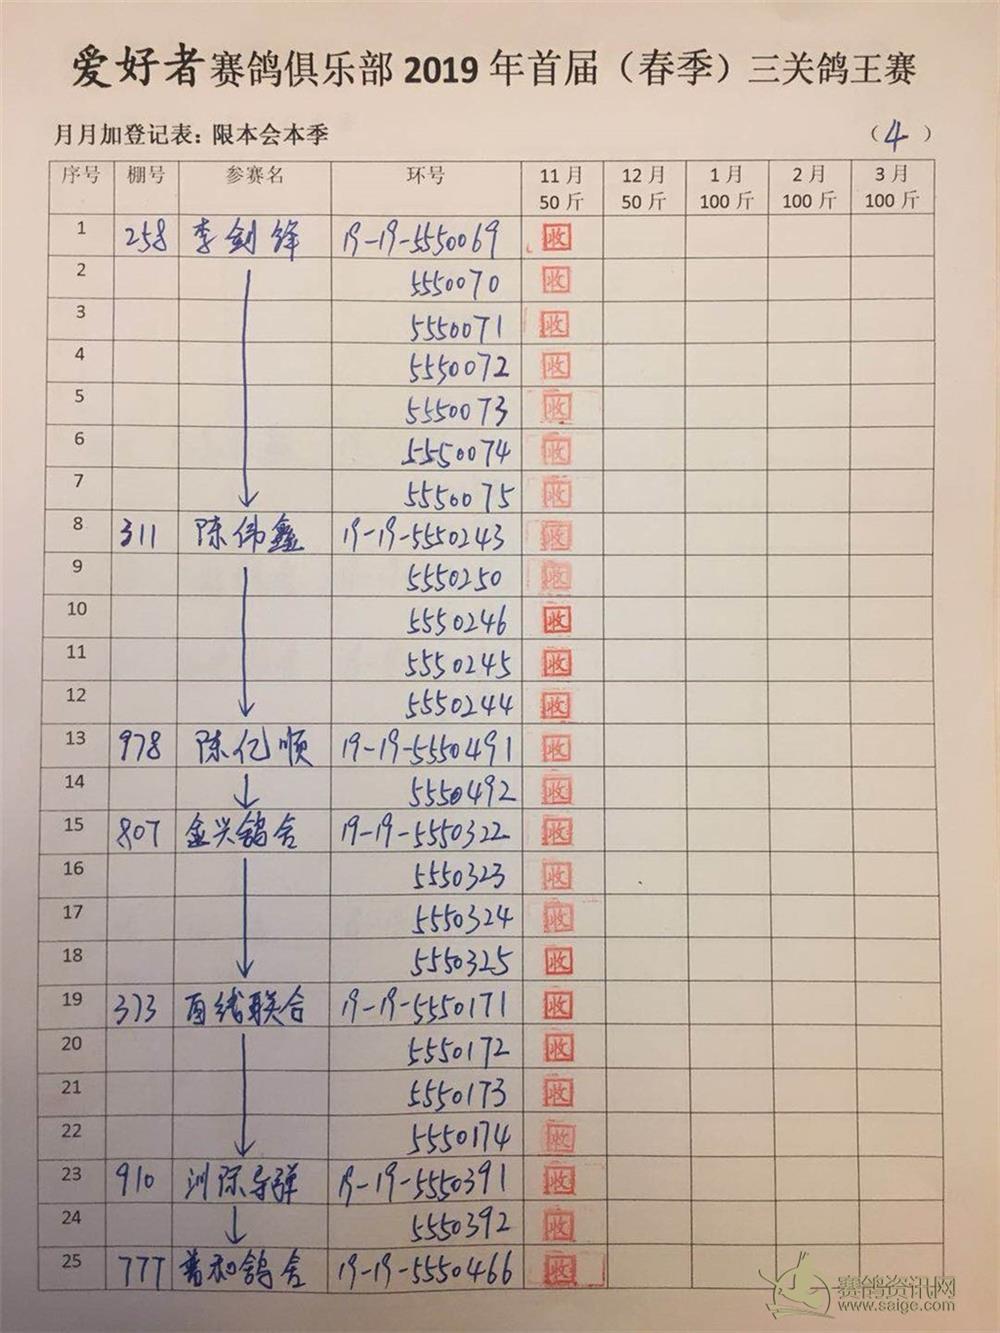 爱好者赛鸽俱乐部 2019 年首届（春季）三关鸽王赛
月月加登记表：限本会本季 （4）
序号 棚号 参赛名 环号 11月 50斤 12月 50斤 1月 100斤 2月 100斤 3月 100斤
1 258 李剑锋 19-19-5550069 收
2 5550070 收
3 5550071 收
4 5550072 收
5 5550073 收
6 5550074 收
7 5550075 收
8 311 陈伟鑫 19-19-5550243 收
9 5550250 收
10 5550246 收
11 5550245 收
12 5550244 收
13 978 陈亿顺 19-19-5550491 收
14 5550492 收
15 807 金兴鸽舍 19-19-5550322 收
16 5550323 收
17 5550324 收
18 5550325 收
19 373 联合 19-19-5550171 收
20 5550172 收
21 5550173 收
22 5550174 收
23 910 导弹 19-19-5550391 收
24 5550392 收
25 777 普和鸽舍 19-19-5550466 收
赛鸽资讯网
www.saige.com